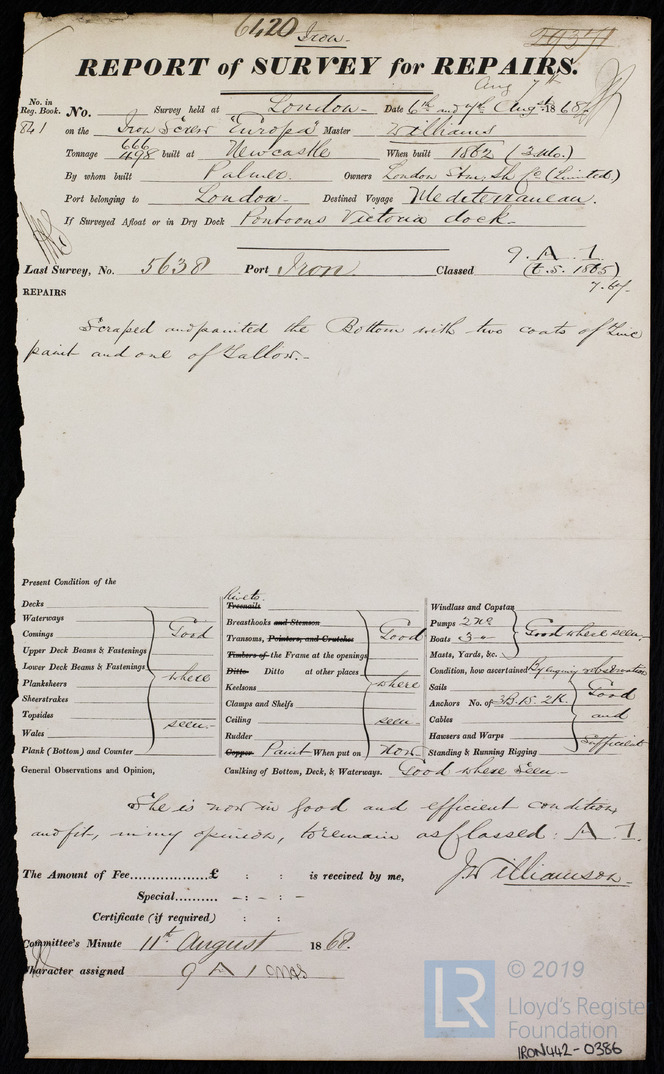 6420 Iron
REPORT of SURVEY for REPAIRS.
Aug 7th
No. in Reg. Book. No. Survey held at London Date 6th and 7th Augst 1868
841 on the Iron Screw "Europa" Master Williams
Tonnage 666 498 built at Newcastle When built 1862 (3 Mo.)
By whom built Palmer Owners London Stm. Sh. Co (Limited)
Port belonging to London Destined Voyage Mediterranean.
If Surveyed Afloat or in Dry Dock Pontoons Victoria dock
Last Survey, No. 5638 Port Iron Classed 9. A. 1. (t.s. 1865)
REPAIRS
Scraped and painted the Bottom with two coats of Zinc
paint and one of Tallow.
Present Condition of the
Decks
Waterways
Comings
Upper Deck Beams & Fastenings
Lower Deck Beams & Fastenings
Planksheers
Sheerstrakes
Topsides
Wales
Plank (Bottom) and Counter
Good where seen
Rivets
Treenails
Breasthooks and Stemson
Transoms, Pointers, and Crutches
Timbers of the Frame at the openings
Ditto Ditto at other places
Keelsons
Clamps and Shelfs
Ceiling
Rudder
Copper Paint When put on now
Good where seen
Windlass and Capstan
Pumps 2 Ne
Boats 3
Masts, Yards, &c.
Good where seen
Condition, how ascertained By enquiry & observation
Sails
Anchors No. of 3B. 1S. 2K.
Cables
Hawsers and Warps
Standing & Running Rigging
Good and sufficient
General Observations and Opinion, Caulking of Bottom, Deck, & Waterways. Good where seen
She is now in good and efficient condition
and fit, in my opinion, to remain as Classed: A. 1.
The Amount of Fee.................£ : : is received by me, J Williamson
Special.......... - : - : -
Certificate (if required) : :
Committee's Minute 11th August 1868.
Character assigned 9 A 1
© 2019
LR
Lloyd's Register
Foundation
IRON442-0386